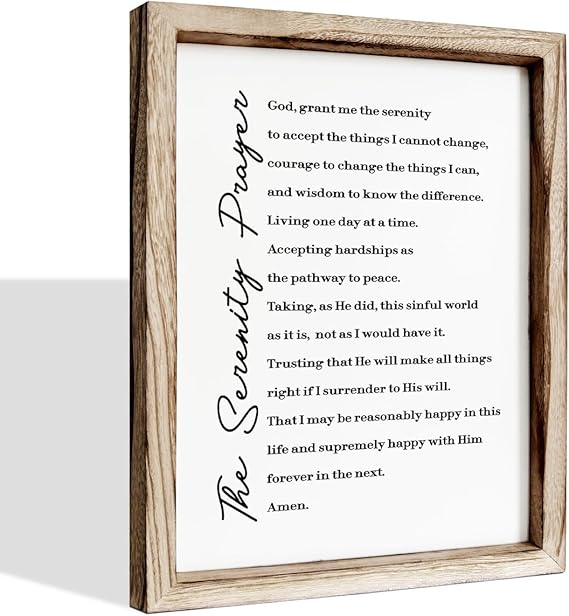 The Serenity Prayer
God, grant me the serenity
to accept the things I cannot change,
courage to change the things I can,
and wisdom to know the difference.
Living one day at a time.
Accepting hardships as
the pathway to peace.
Taking, as He did, this sinful world
as it is, not as I would have it.
Trusting that He will make all things
right if I surrender to His will.
That I may be reasonably happy in this
life and supremely happy with Him
forever in the next.
Amen.